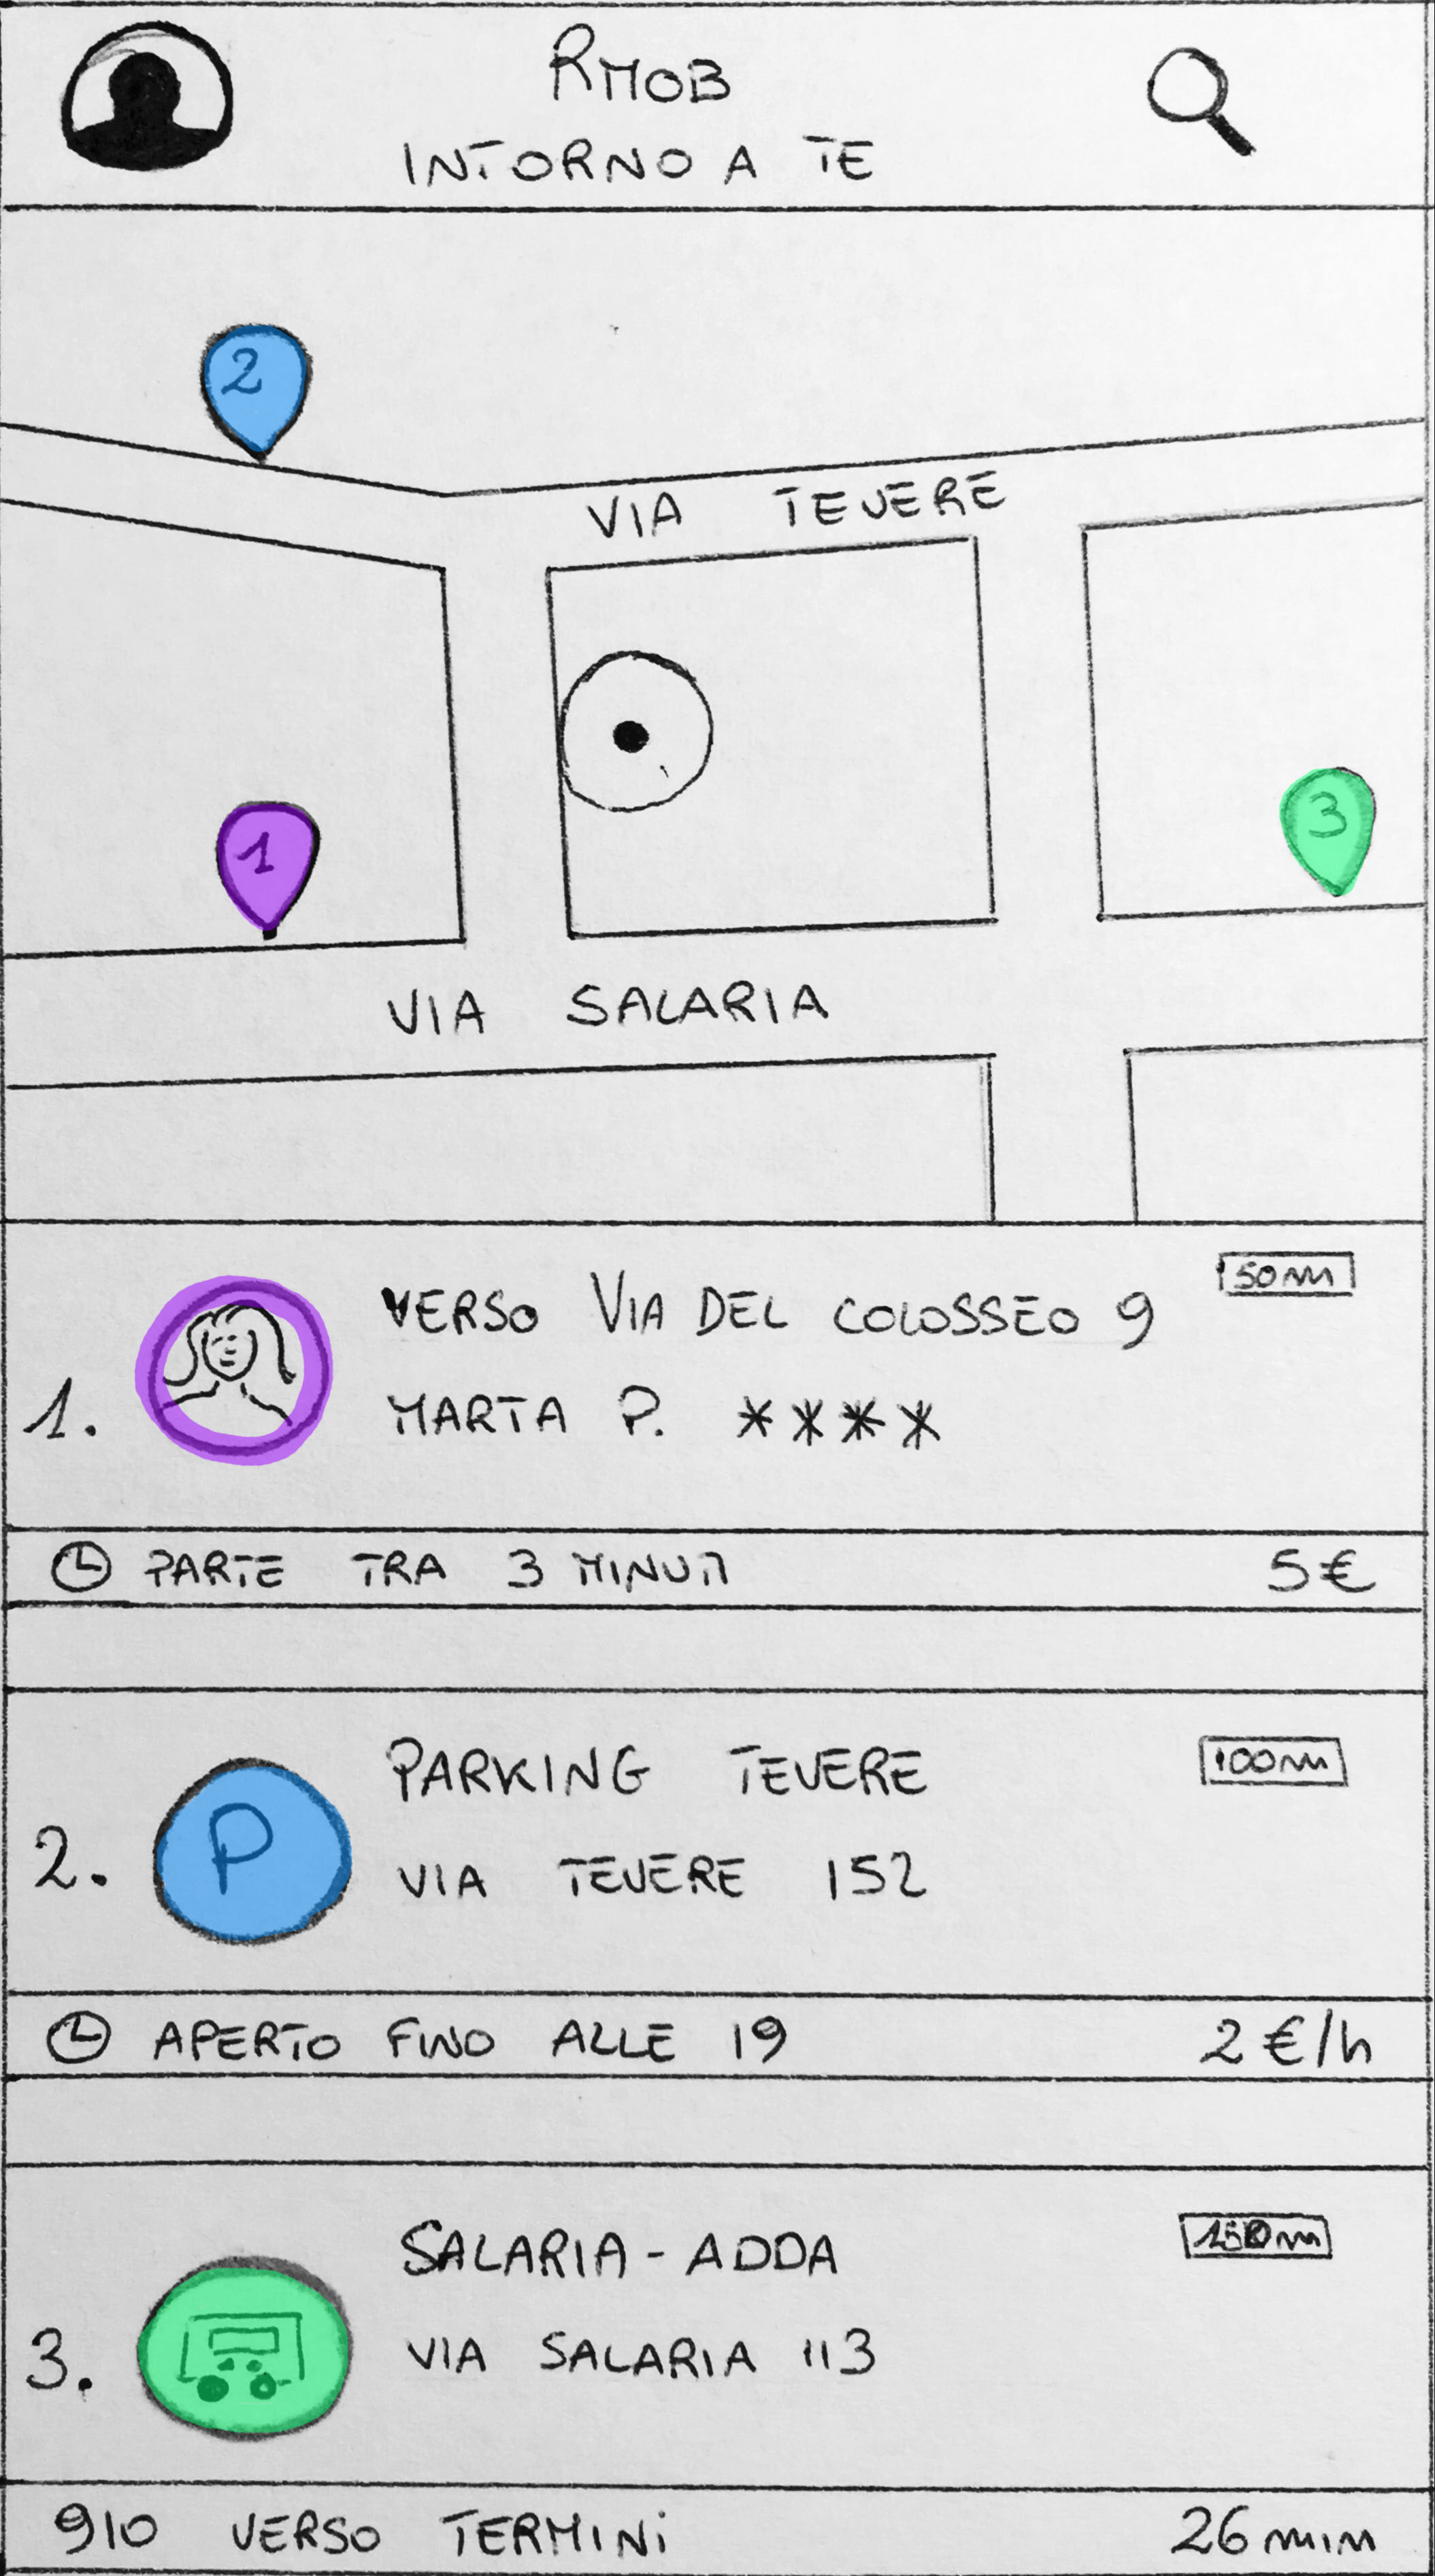 RMOB
INTORNO A TE
2
VIA TEVERE
1
3
VIA SALARIA
50m
VERSO VIA DEL COLOSSEO 9
1.
MARTA P. ****
PARTE TRA 3 MINUTI
5€
PARKING TEVERE
100m
2.
P
VIA TEVERE 152
APERTO FINO ALLE 19
2€/h
SALARIA-ADDA
3.
VIA SALARIA 113
910 VERSO TERMINI
26 min